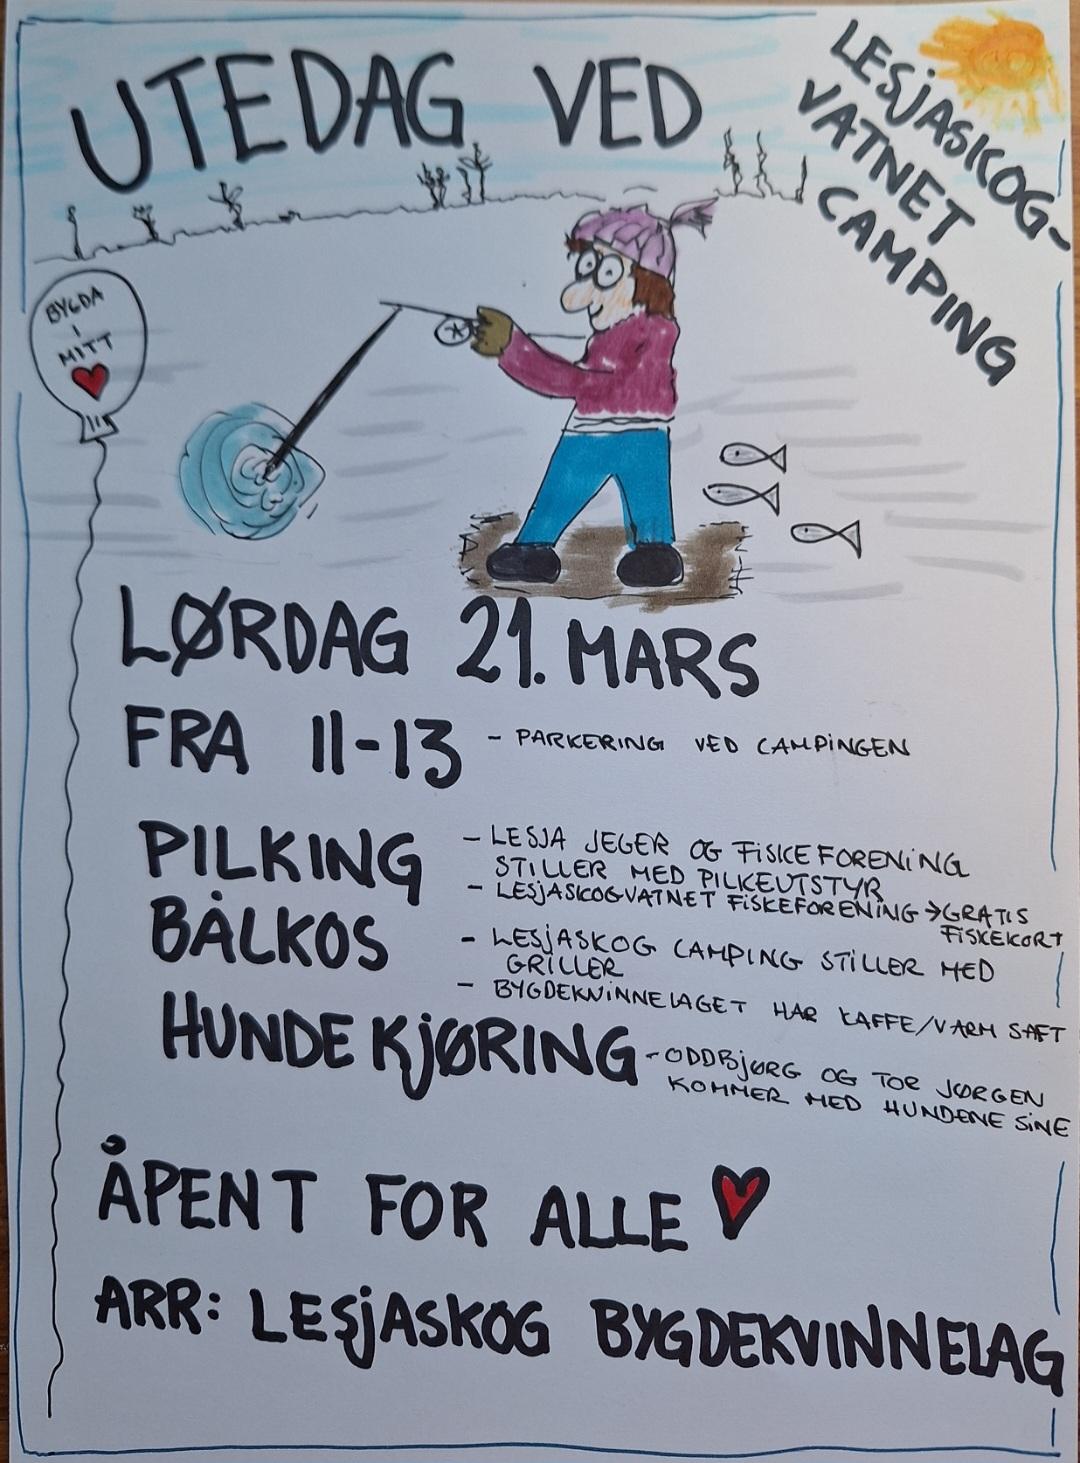 UTEDAG VED
LESJASKOG-
VATNET
CAMPING
BYGDA
I
MITT
LØRDAG 21. MARS
FRA 11-13
- PARKERING VED CAMPINGEN
PILKING
- LESJA JEGER OG FISKEFORENING
STILLER MED PILKEUTSTYR
- LESJASKOGVATNET FISKEFORENING → GRATIS
FISKEKORT
BÅLKOS
- LESJASKOG CAMPING STILLER MED
GRILLER
- BYGDEKVINNELAGET HAR KAFFE/VARM SAFT
HUNDEKJØRING
- ODDBJØRG OG TOR JØRGEN
KOMMER MED HUNDENE SINE
ÅPENT FOR ALLE
ARR: LESJASKOG BYGDEKVINNELAG